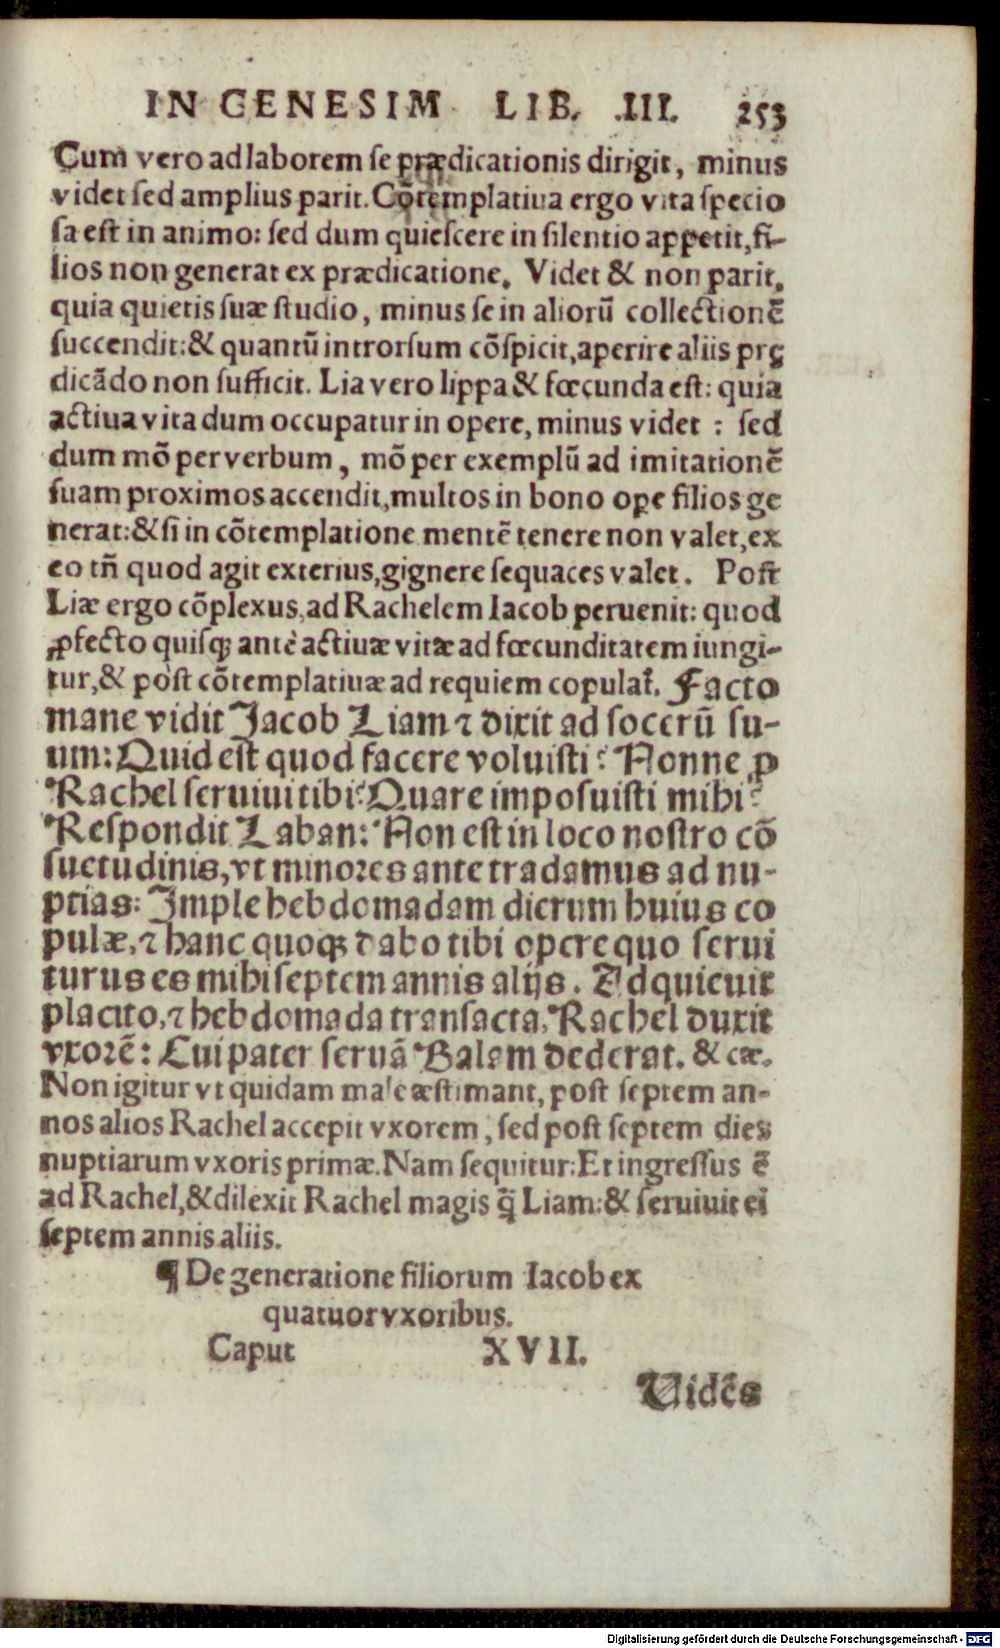 IN GENESIM LIB. .III. 253
Cum vero ad laborem se prædicationis dirigit, minus
videt sed amplius parit. Cōtemplatiua ergo vita specio
sa est in animo: sed dum quiescere in silentio appetit, fi-
lios non generat ex prædicatione. Videt & non parit.
quia quietis suæ studio, minus se in aliorū collectionē
succendit: & quantū introrsum cōspicit, aperire aliis prę
dicādo non sufficit. Lia vero lippa & fœcunda est: quia
actiua vita dum occupatur in opere, minus videt : sed
dum mō per verbum, mō per exemplū ad imitationē
suam proximos accendit, multos in bono oꝑe filios ge
nerat: & si in cōtemplatione mentē tenere non valet, ex
eo tn̄ quod agit exterius, gignere sequaces valet. Post
Liæ ergo cōplexus, ad Rachelem Iacob peruenit: quod
ꝓfecto quisqꝫ ante actiuæ vitæ ad fœcunditatem iungi-
tur, & post cōtemplatiuæ ad requiem copulat᷑. Facto
mane vidit Jacob Liam ⁊ dixit ad socerū su-
um: Quid est quod facere voluisti? Nonne ꝓ
Rachel seruiui tibi? Quare imposuisti mihi?
Respondit Laban: Non est in loco nostro cō
suetudinis, vt minores ante tradamus ad nu-
ptias: Imple hebdomadam dierum huius co
pulæ, ⁊ hanc quoqꝫ dabo tibi opere quo serui
turus es mihi septem annis alijs. Adquieuit
placito, ⁊ hebdomada transacta, Rachel duxit
vxorē: Cui pater seruā Balam dederat. & cæ.
Non igitur vt quidam male æstimant, post septem an-
nos alios Rachel accepit vxorem, sed post septem dies
nuptiarum vxoris primæ. Nam sequitur: Et ingressus ē
ad Rachel, & dilexit Rachel magis q̄ Liam: & seruiuit ei
septem annis aliis.
¶ De generatione filiorum Iacob ex
quatuor vxoribus.
Caput XVII.
Vidēs
Digitalisierung gefördert durch die Deutsche Forschungsgemeinschaft - DFG